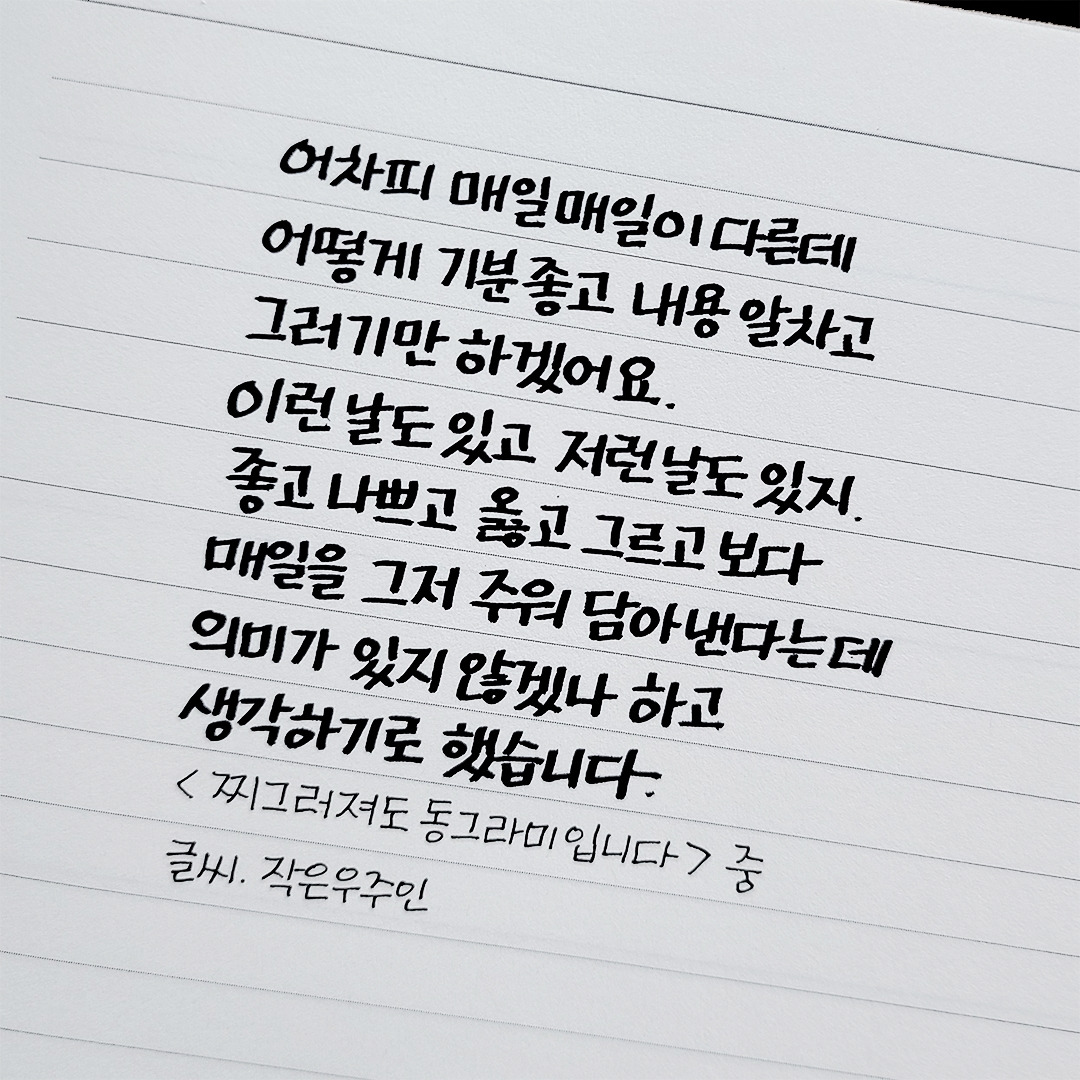 어차피 매일매일이 다른데
어떻게 기분 좋고 내용 알차고
그러기만 하겠어요.
이런 날도 있고 저런 날도 있지.
좋고 나쁘고 옳고 그르고 보다
매일을 그저 주워 담아 낸다는데
의미가 있지 않겠나 하고
생각하기로 했습니다.
< 찌그러져도 동그라미입니다 > 중
글씨. 작은우주인